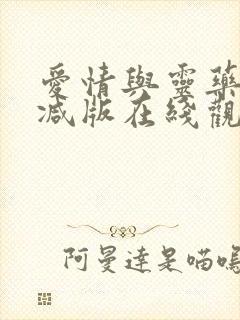 愛情與靈藥
減版在綫觀
阿曼達是喵嗚